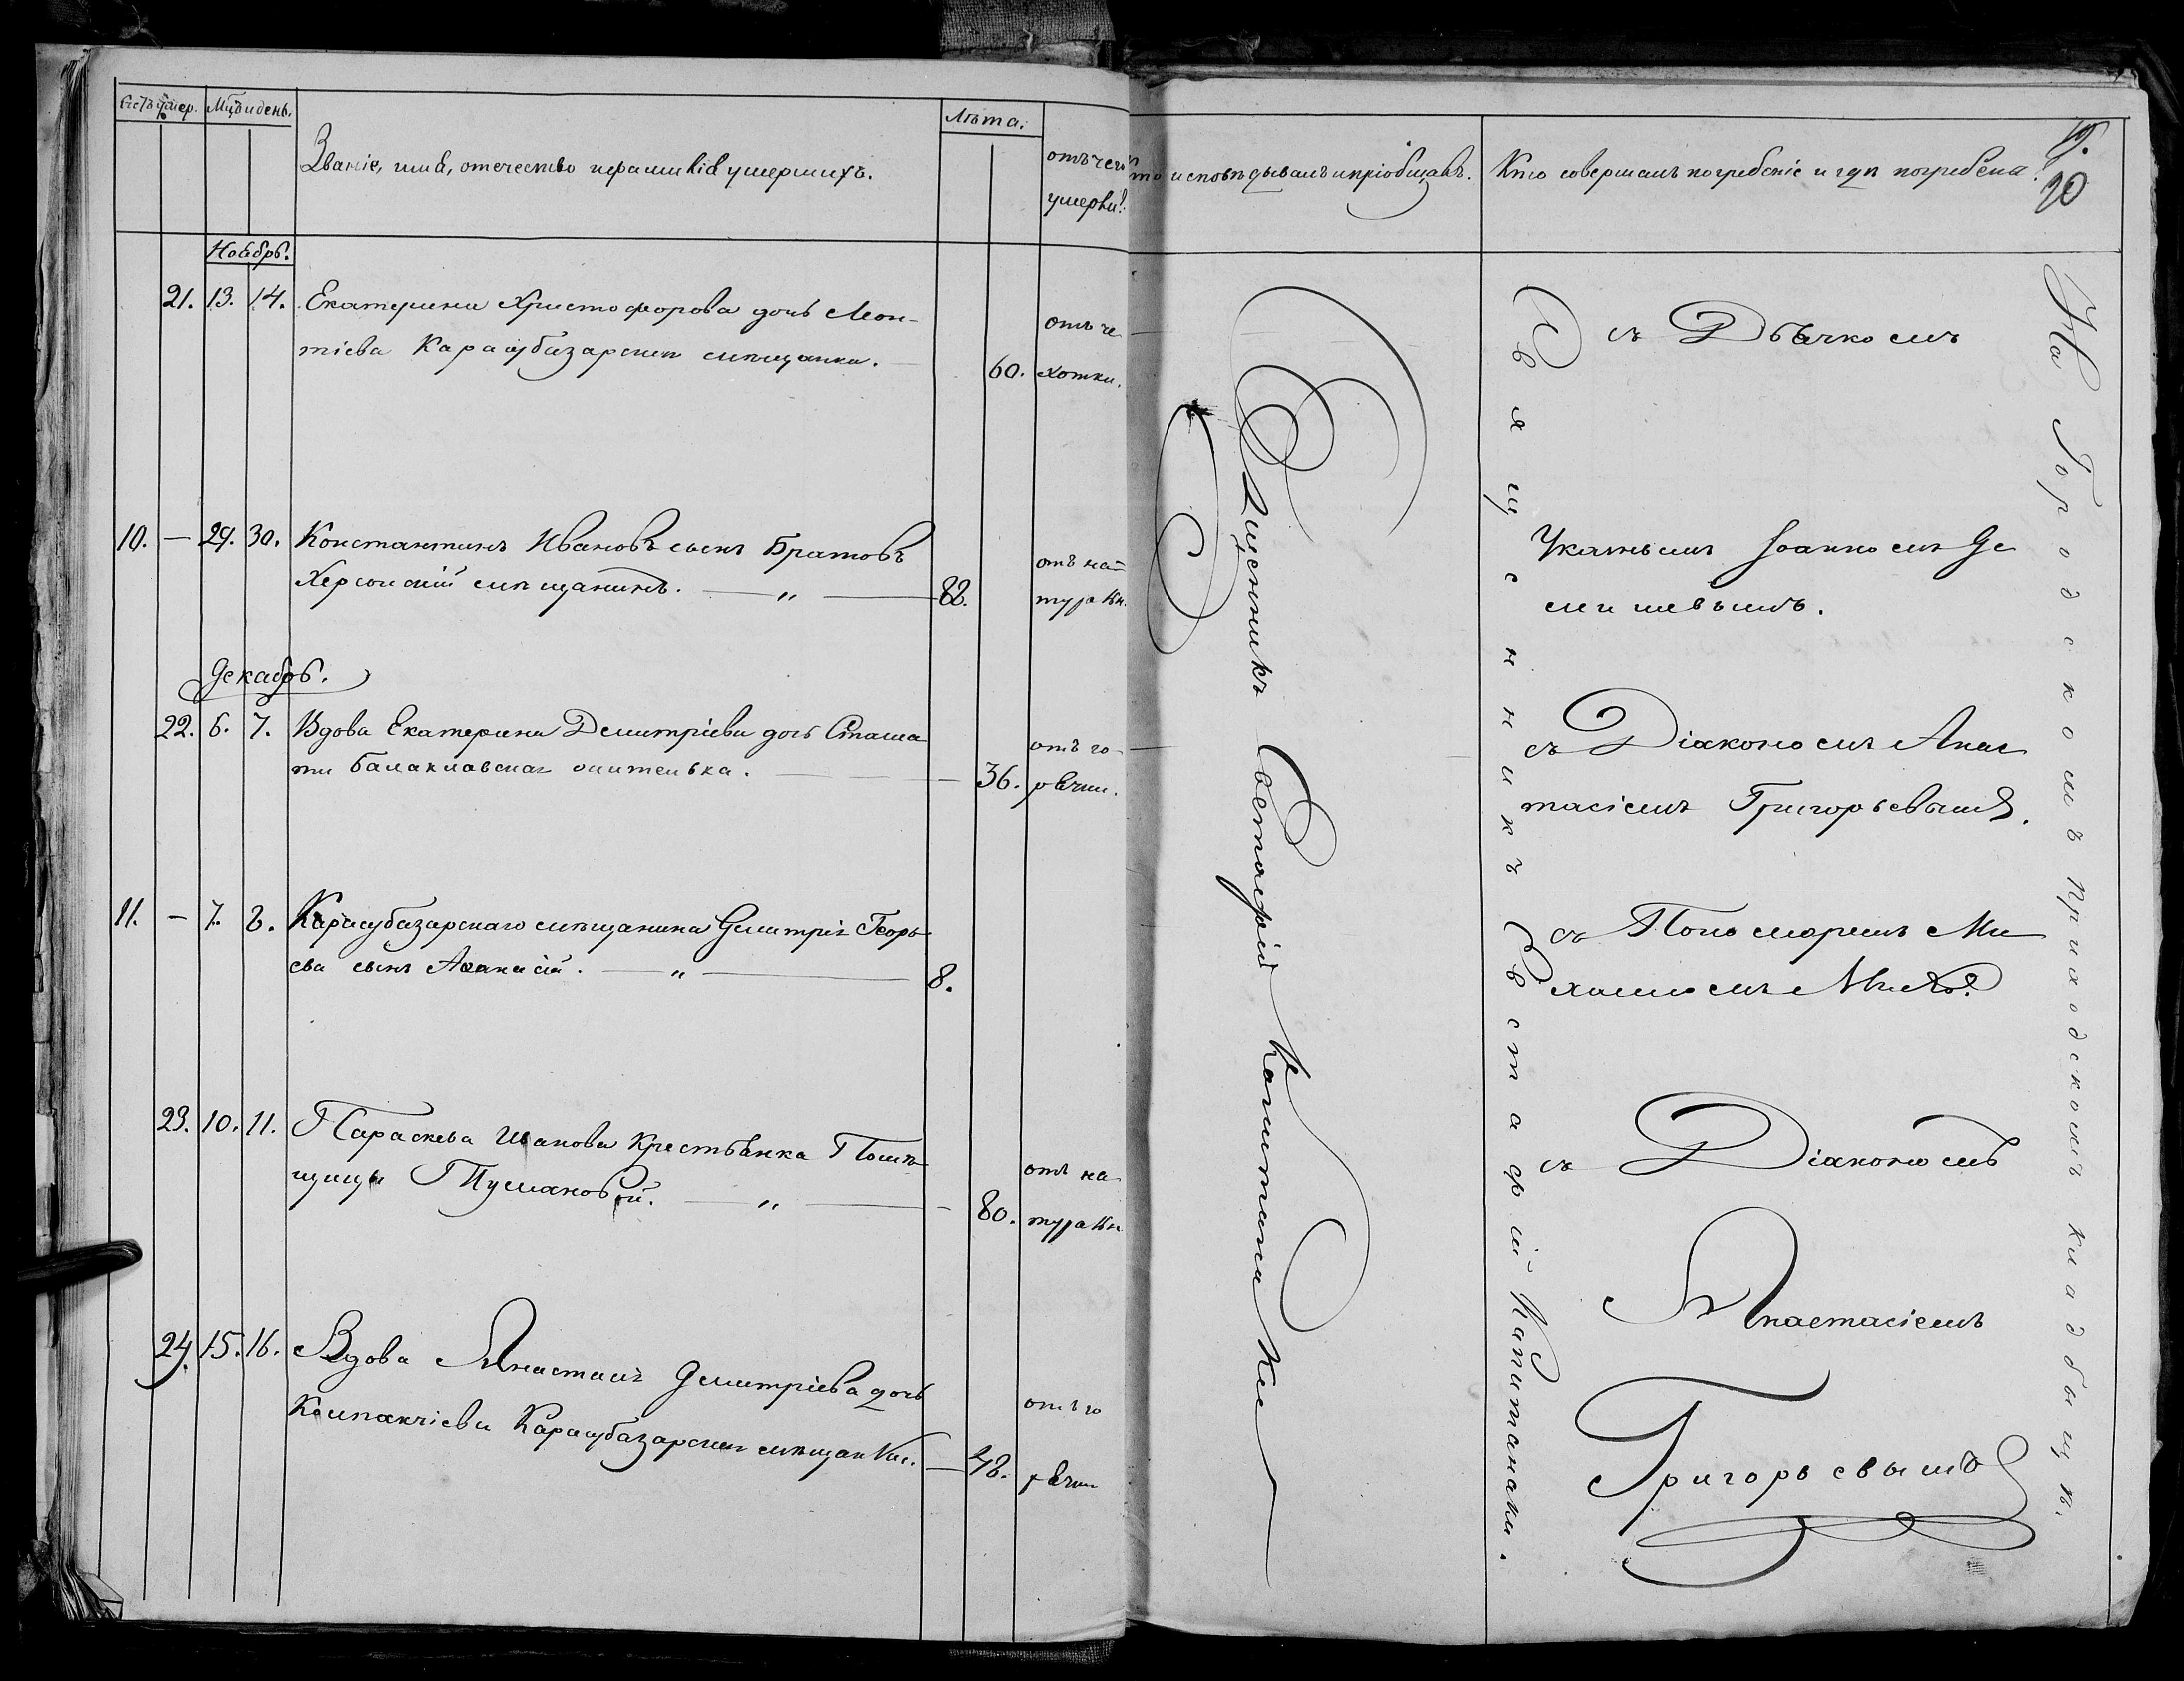 Счетъ умер.
Мѣс. и день.
Званіе, имя, отечество и фамилія умершихъ.
Лѣта.
отъ чего
умерли.
кто исповѣдывалъ и пріобщалъ.
Кто совершалъ погребеніе и гдѣ погребена?
20
Ноябрь.
21. 13. 14. Екатерина Христофорова дочь Леон-
тіева Карасубазарская мѣщанка. 60.
отъ ча
хотки.
съ Дьячкомъ
10. — 29. 30. Константинъ Ивановъ сынъ Братовъ
Херсонскій мѣщанинъ. — „ — 88.
отъ на
туральн.
Указнымъ Іоанномъ Де
мишевымъ.
Декабрь.
22. 6. 7. Вдова Екатерина Димитріева дочь Стама
ти балаклавская жителька. — 36.
отъ го
рячки.
съ Діакономъ Анас
тасіемъ Григорьевымъ.
11. — 7. 8. Карасубазарскаго мѣщанина Димитрія Георь
ева сынъ Аѳанасій. — „ — 8.
съ Пономаремъ Ми
хаиломъ
23. 10. 11. Параскева Иванова Крестьянка Помѣ
щицы Тумановой. — „ — 80.
отъ на
туральн
съ Діакономъ
Анастасіемъ
Григорьевымъ
24. 15. 16. Вдова Анастасія Димитріева дочь
Компакчіева Карасубазарская мѣщанка. — 48.
отъ го
рячки
Священникъ Евстафій Капитанаки
Священникъ Евстафій Капитанаки.
На Городскомъ приходскомъ кладбищѣ.